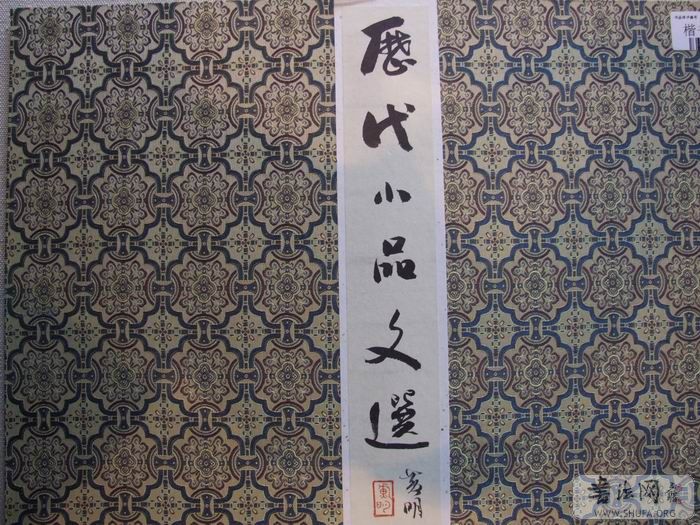 歷代小品文選
明
楷
書法网
WWW.SHUFA.ORG